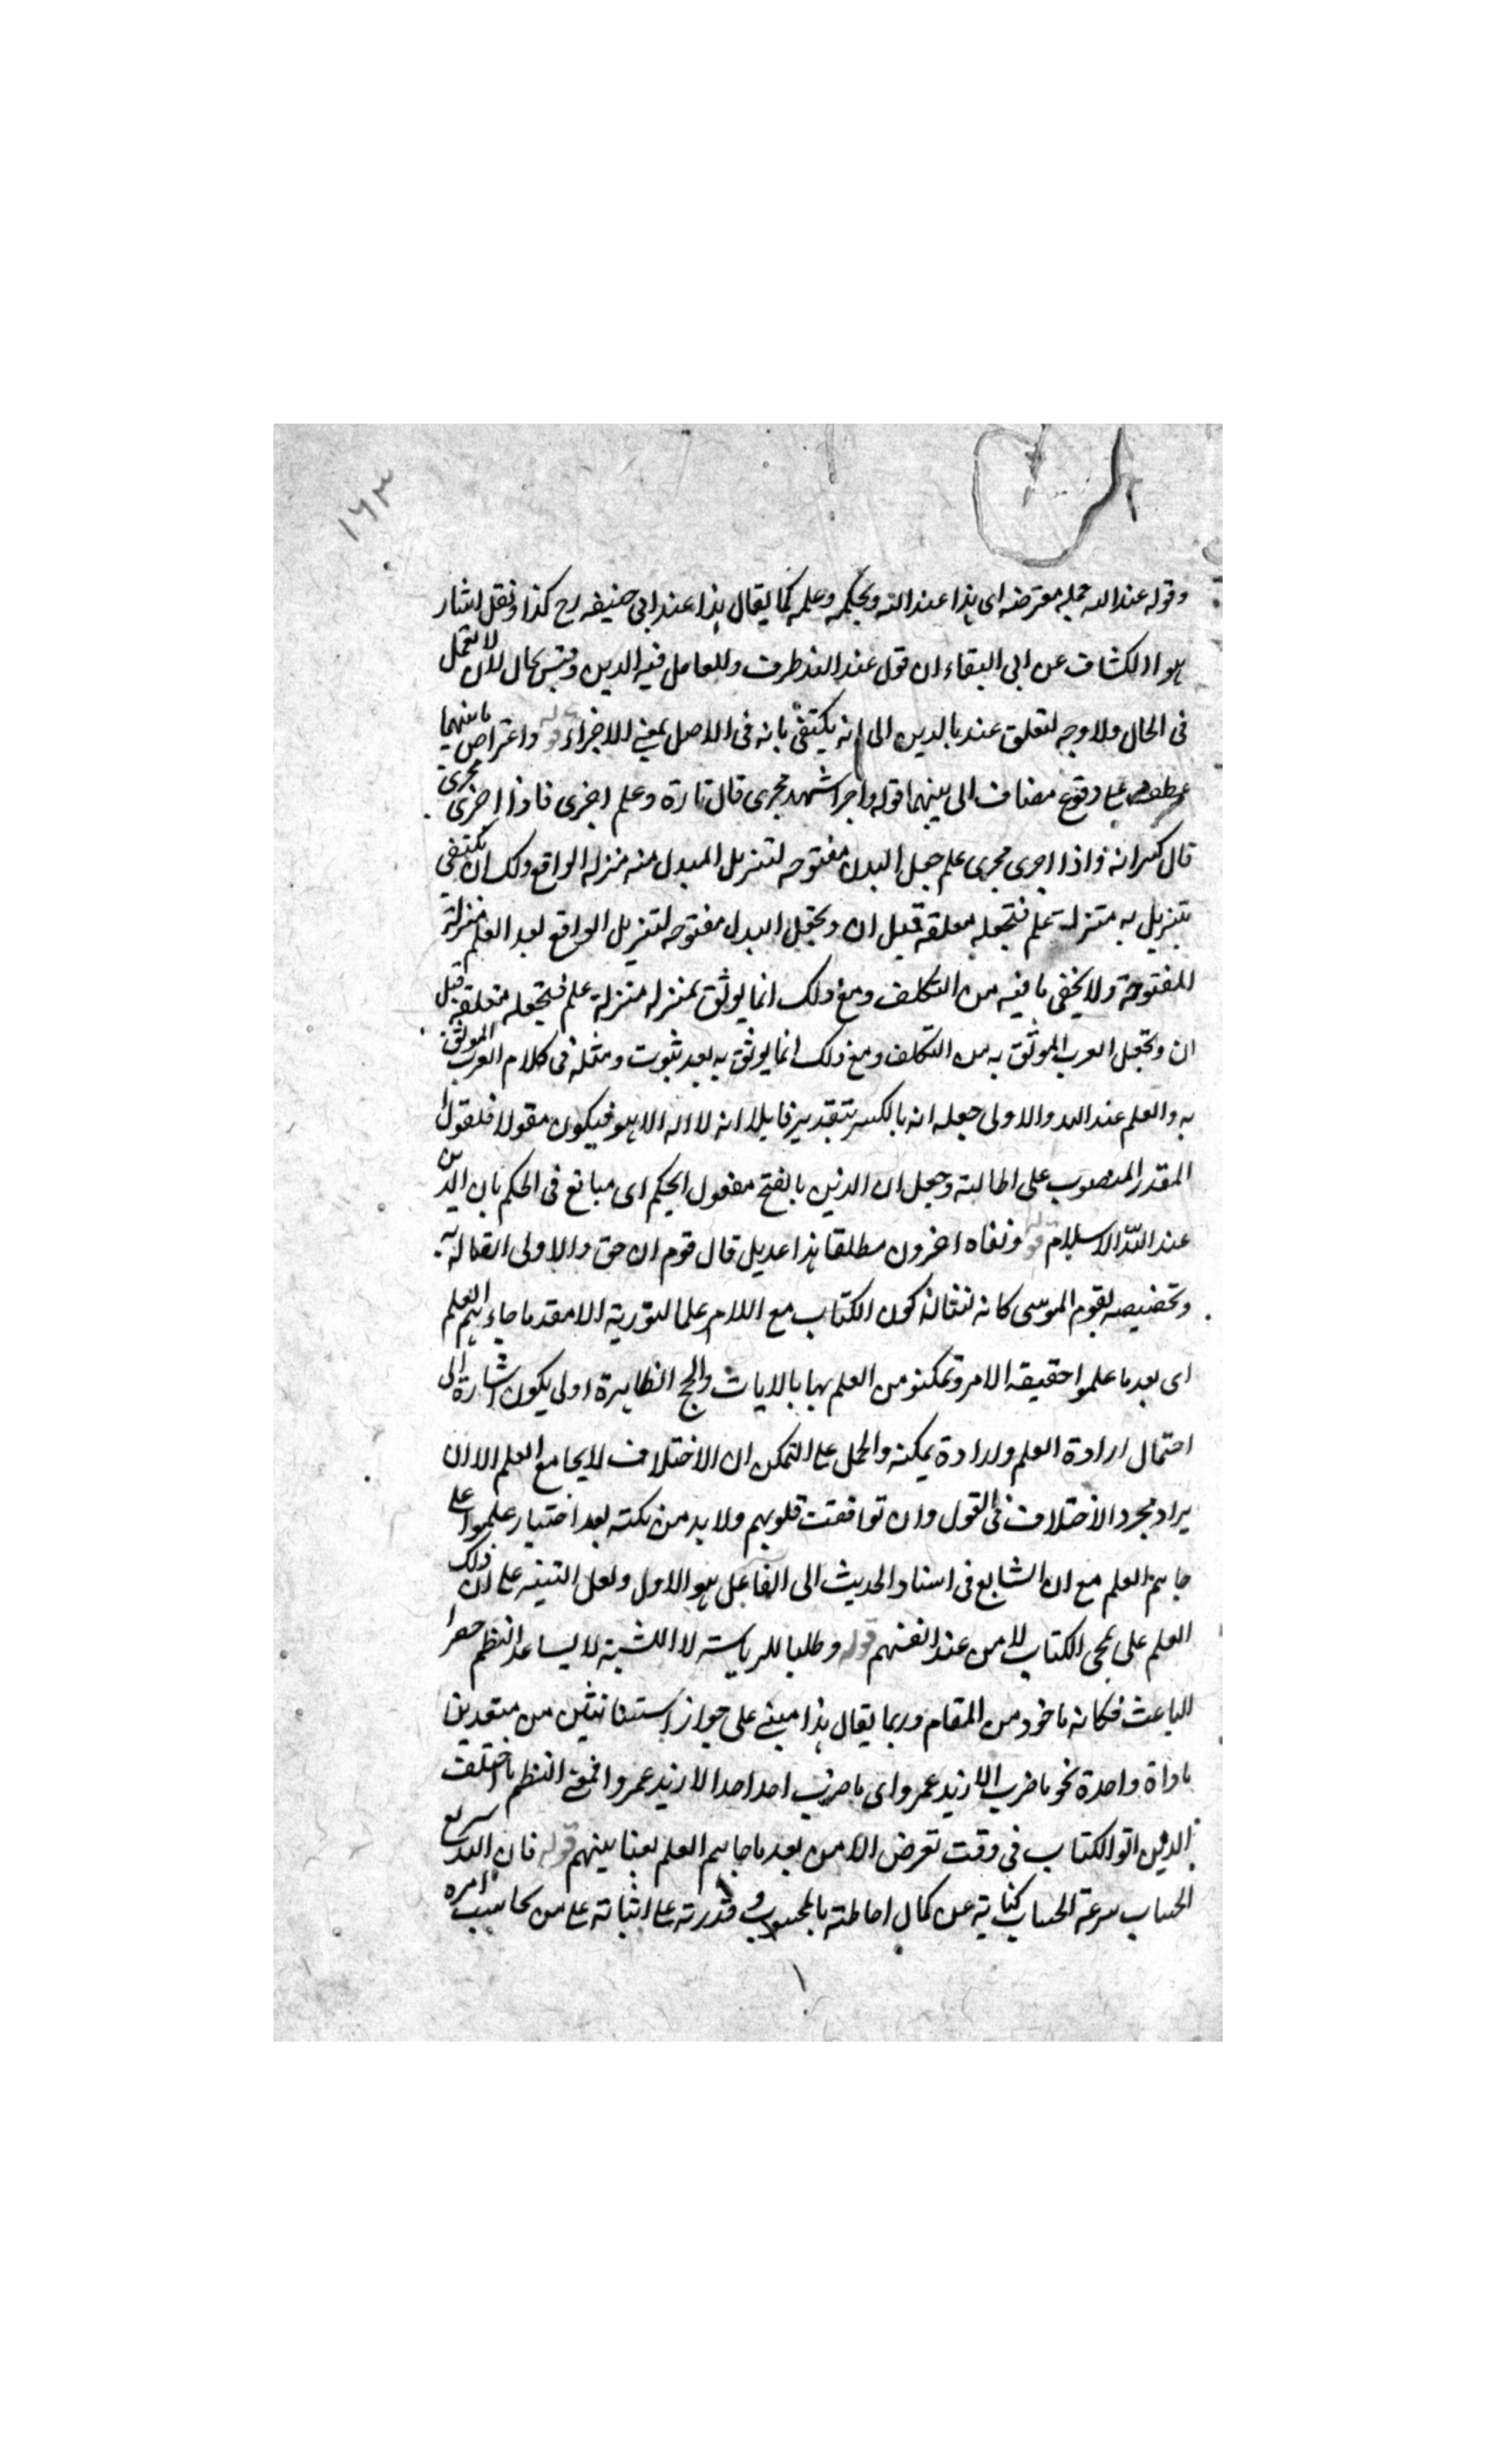 ١٦٣
وقوله عند الله جملة معترضه اى هذا عند الله وبحكمه وعلمه كما يقال هذا عند ابى حنيفه رح كذا ونقل اشار
الكشاف عن ابى البقاء ان قول عند الله ظرف وللعامل فيه الدين وليس بحال لان لا تعمل
فى الحال ولا وجه لتعلق عند بالدين الى انه يكتفى بانه فى الاصل بمعنى الاجزاء قوله واعتراض ما بينهما
عطف على وقوع مضاف الى بينهما قوله واجرا شهد مجرى قال تارة وعلم اخرى فاذا اجرى مجرى
قال كسر انه واذا اجرى مجرى علم جعل البدل مفتوحه لتنزيل المبدل منه منزله الواقع ولك ان تكتفى
بتنزيل به منزلة علم فتجعله معلقه قبل ان وتجعل البدل مفتوحه لتنزيل الواقع بعد العلم منزلة
المفتوحة ولا يخفى ما فيه من التكلف ومع ذلك انما يوثق بمنزله منزلة علم فتجعله متعلقه قبل
ان وتجعل العرب الموثق به من التكلف ومع ذلك انما يوثق به بعد ثبوت ومثله فى كلام العرب الموثق
به والعلم عند الله والاولى جعله انه بالكسر بتقدير قايلا انه لا اله الا هو فيكون مقولا فلقول
المقدر المنصوب على الحالية وجعل ان الدين بالفتح مفعول الحكيم اى مبالغ فى الحكم بان الدين
عند الله الاسلام قوله ونفاه اخرون مطلقا هذا عديل قال قوم ان حق والاولى
وتخصيصه بقوم الموسى كانه كون الكتاب مع اللام علما لتورية الا مقد ما جاءهم العلم
اى بعد ما علموا حقيقه الامر وتمكنو من العلم بها بالايات والحج الظاهرة اولى يكون اشارة الى
احتمال ارادة العلم ولرادة يمكنه والحمل على التمكن ان الاختلاف لا يجامع العلم الا ان
يراد مجرد الاختلاف فى القول وان توافقت قلوبهم ولا بد من نكته بعد اختيار علموا على
جاءهم العلم مع ان الشايع فى اسناد الحديث الى الفاعل هو الاول ولعل التنبيه على ان ذلك
العلم على مجى الكتاب لا من عند انفسهم قوله وطلبا للرياسته لا الشبة لا يساعد النظم حصر
الباعث فكانه ماخوذ من المقام وربما يقال هذا مبنى على جواز استثنا شيئين من متعددين
باداة واحدة نحو ما ضرب الا زيد عمروا اى ما ضرب احد احدا الا زيد عمروا فمعنى النظم ما اختلف
الذين اتوا الكتاب فى وقت تعرض الا من بعد ما جاءهم العلم بغيا بينهم قوله فان الله سريع
الحساب سرعة الحساب كناية عن كمال احاطته بالمحسوب وقدرته على اثباته على من يحاسب امره